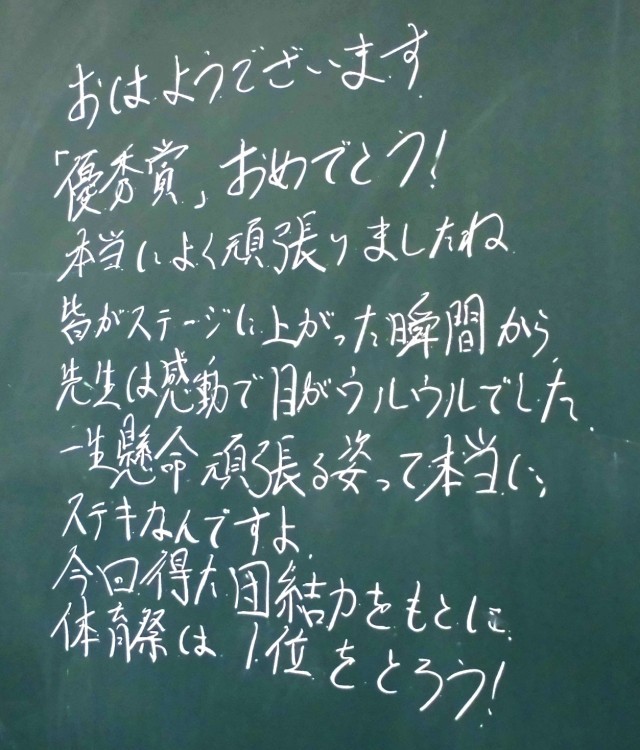 おはようございます
「優秀賞」おめでとう!
本当によく頑張りましたね
皆がステージに上がった瞬間から
先生は感動で目がウルウルでした。
一生懸命頑張る姿って本当に、
ステキなんですよ。
今回得た団結力をもとに
体育祭は1位をとろう!